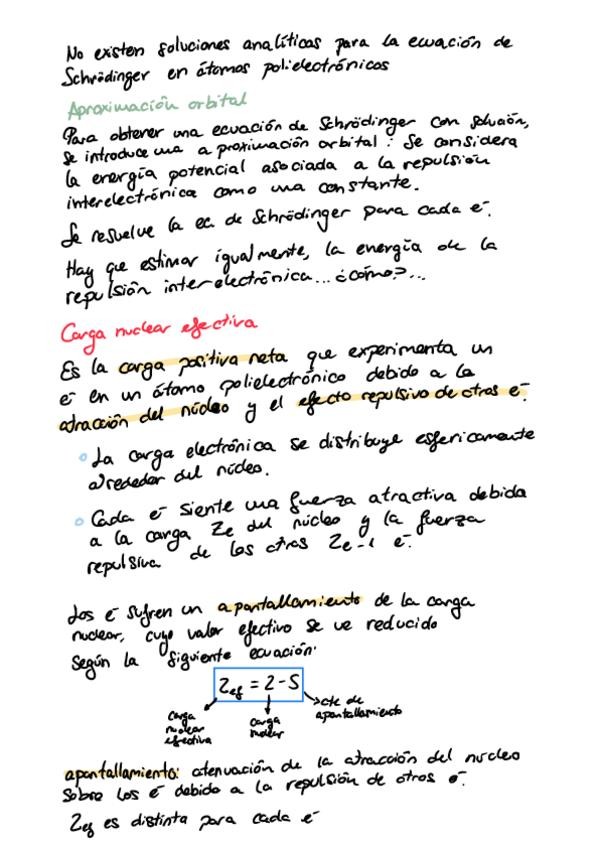 No existen soluciones analíticas para la ecuación de
Schrödinger en átomos polielectrónicos
Aproximación orbital
Para obtener una ecuación de Schrödinger con solución,
se introduce una aproximación orbital: Se considera
la energía potencial asociada a la repulsión
interelectrónica como una constante.
Se resuelve la ec. de Schrödinger para cada e⁻.
Hay que estimar igualmente, la energía de la
repulsión interelectrónica... ¿cómo?...
Carga nuclear efectiva
Es la carga positiva neta que experimenta un
e⁻ en un átomo polielectrónico debido a la
atracción del núcleo y el efecto repulsivo de otros e⁻.
◦ La carga electrónica se distribuye esfericamente
alrededor del núcleo.
◦ Cada e⁻ siente una fuerza atractiva debida
a la carga Ze del núcleo y la fuerza
repulsiva de los otros Ze-1 e⁻.
Los e⁻ sufren un apantallamiento de la carga
nuclear, cuyo valor efectivo se ve reducido
según la siguiente ecuación:
Zef = Z - S
carga nuclear efectiva
carga nuclear
cte de apantallamiento
apantallamiento: atenuación de la atracción del nucleo
sobre los e⁻ debido a la repulsión de otros e⁻.
Zef es distinta para cada e⁻